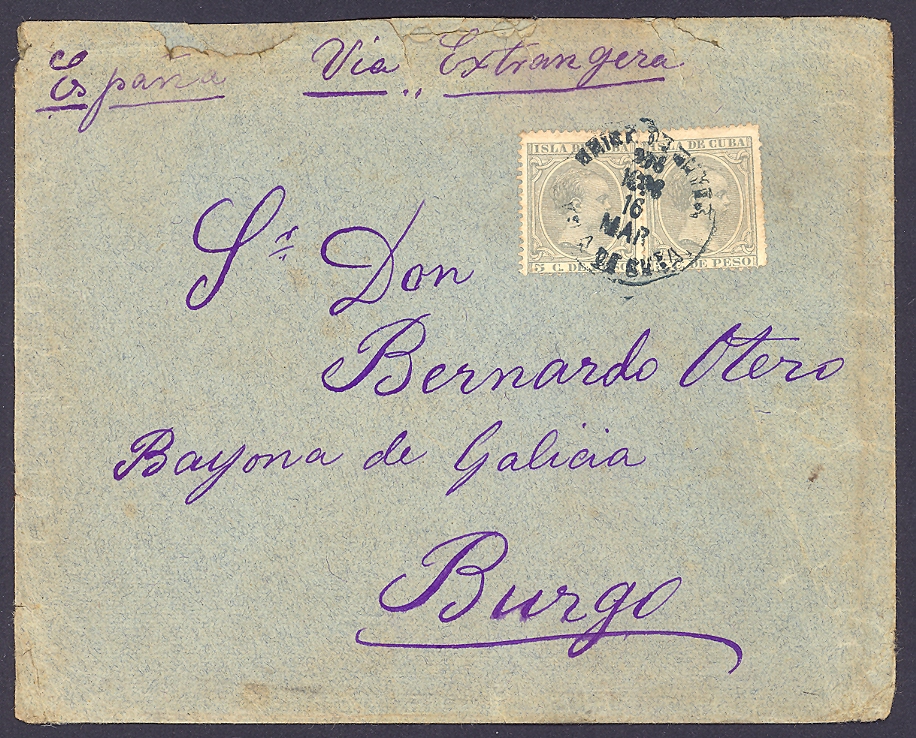 España Via Extrangera
ISLA DE CUBA
5 C. DE PESO
16
MAR
Sr Don
Bernardo Otero
Bayona de Galicia
Burgo